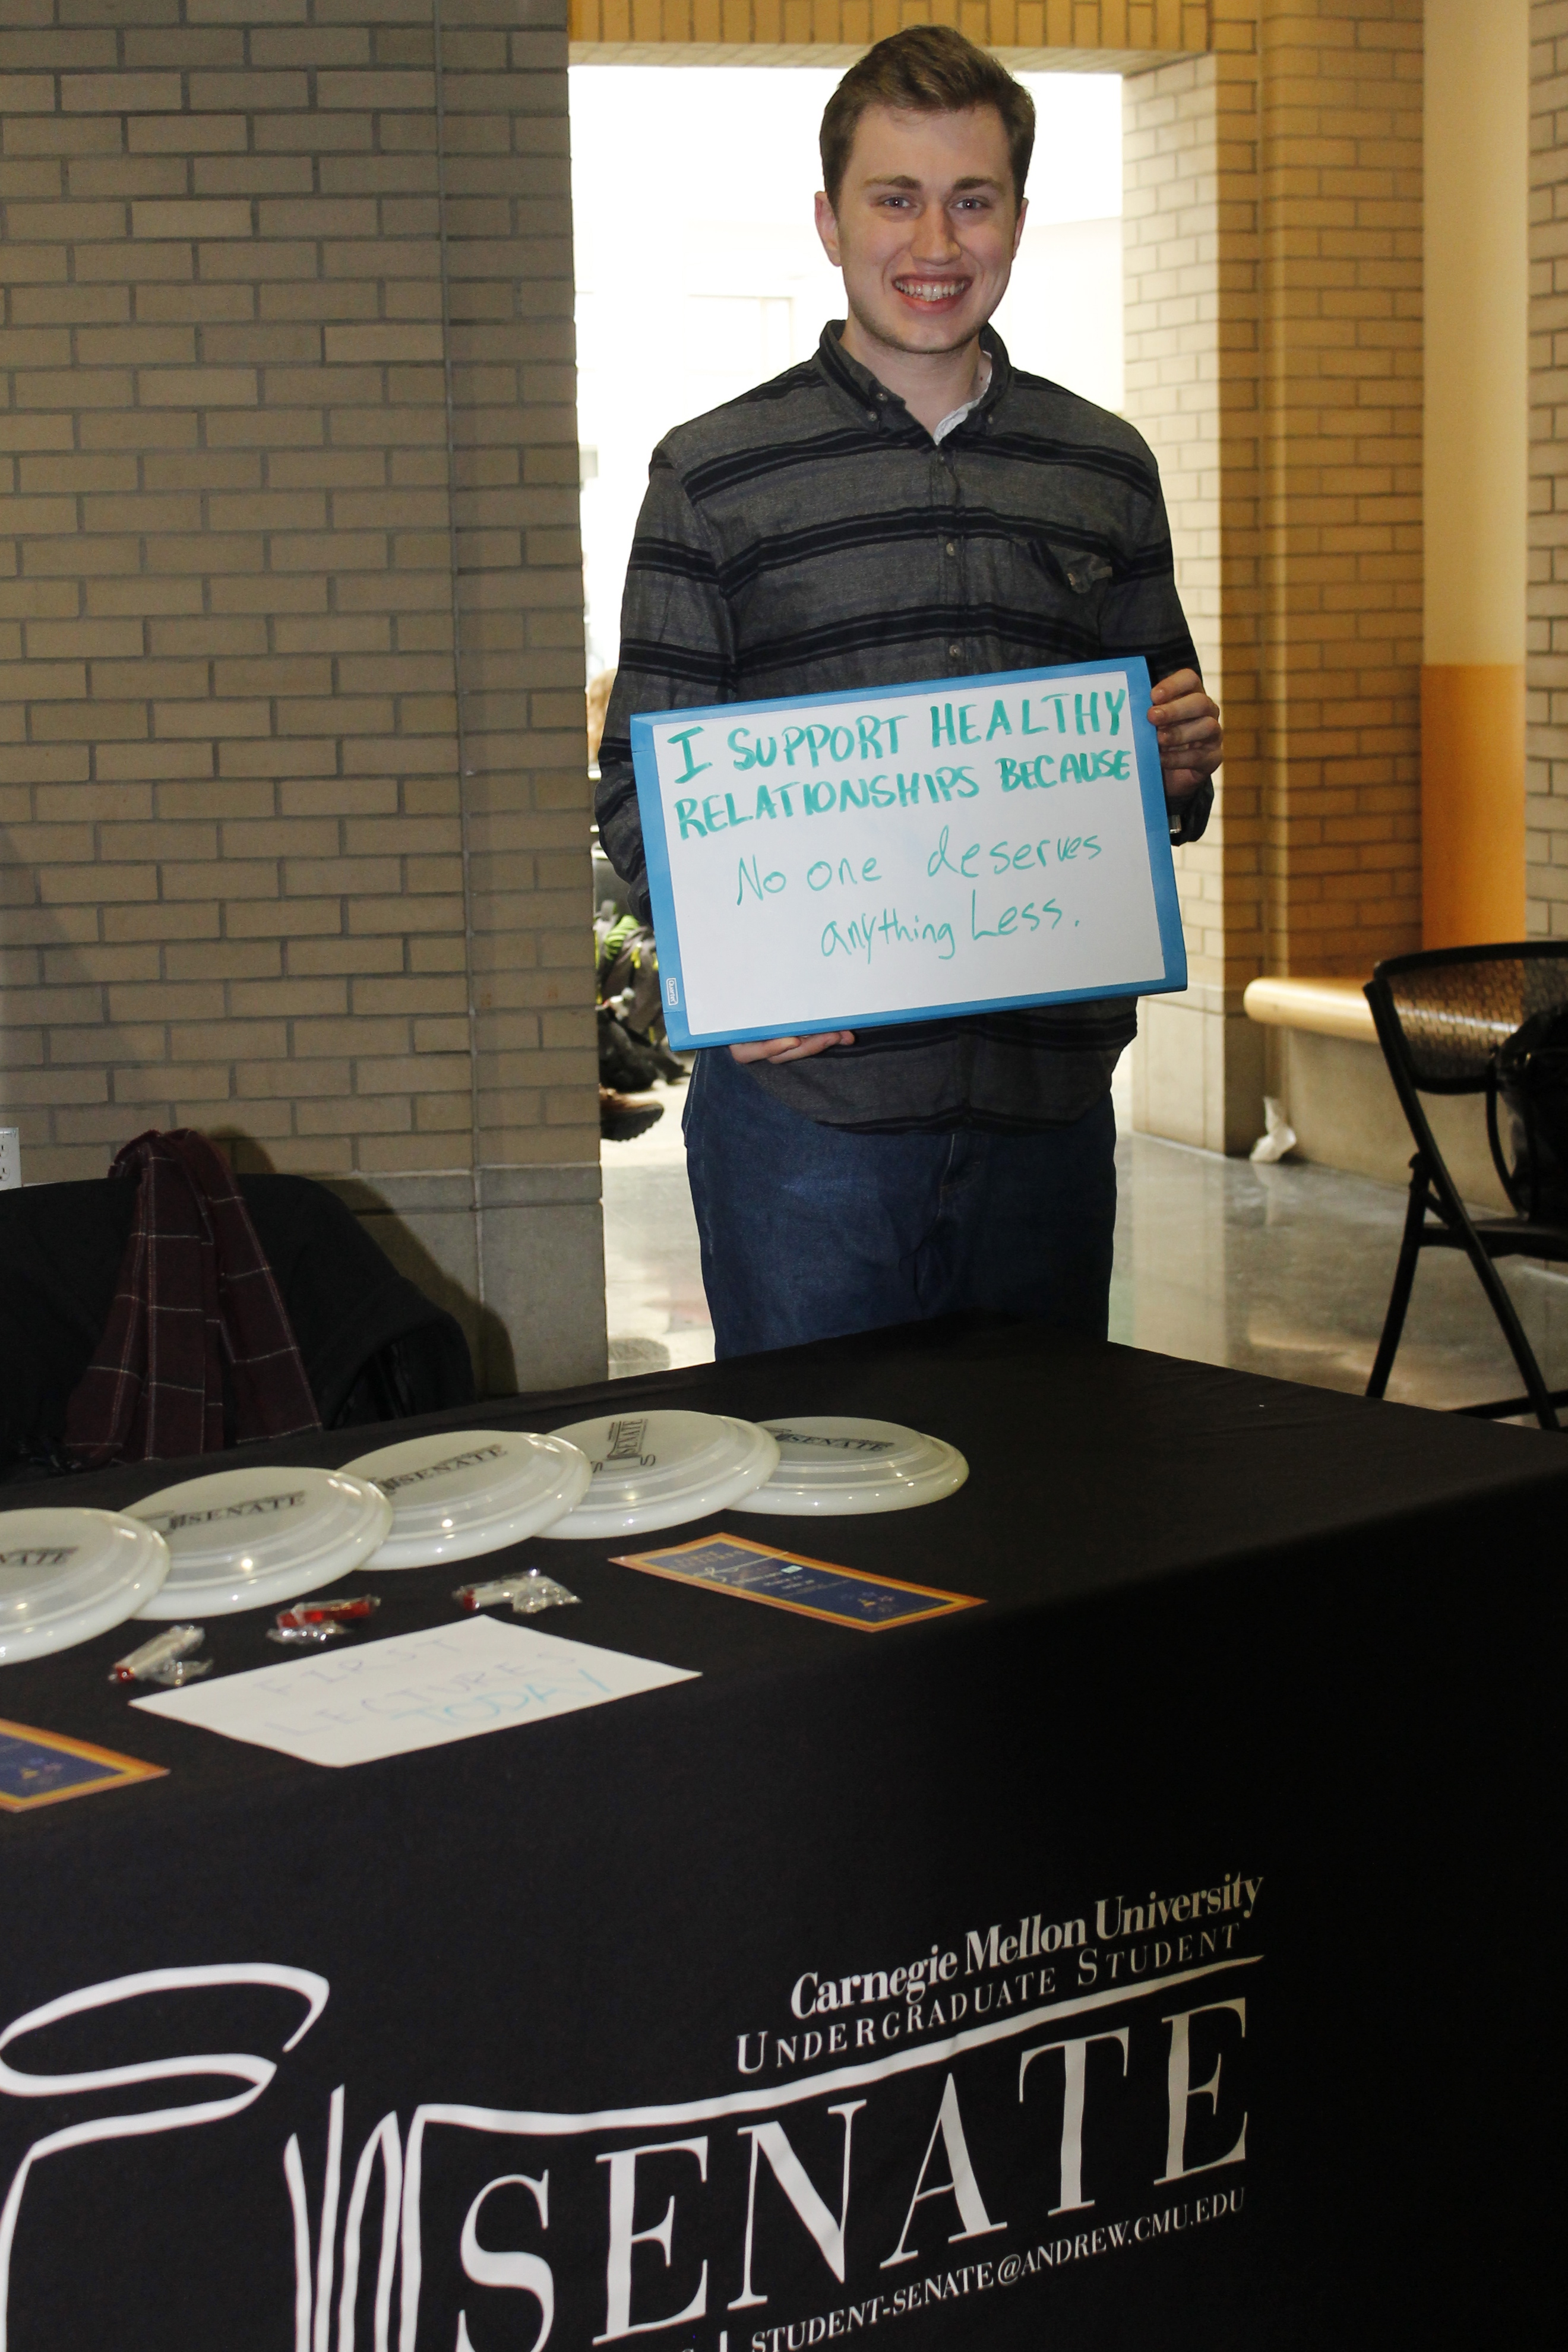 I SUPPORT HEALTHY
RELATIONSHIPS BECAUSE
No one deserves
anything Less.
SENATE
SENATE
SENATE
SENATE
FIRST
LECTURES
FIRST
LECTURES
TODAY
Carnegie Mellon University
UNDERGRADUATE STUDENT
SENATE
STUDENT-SENATE@ANDREW.CMU.EDU